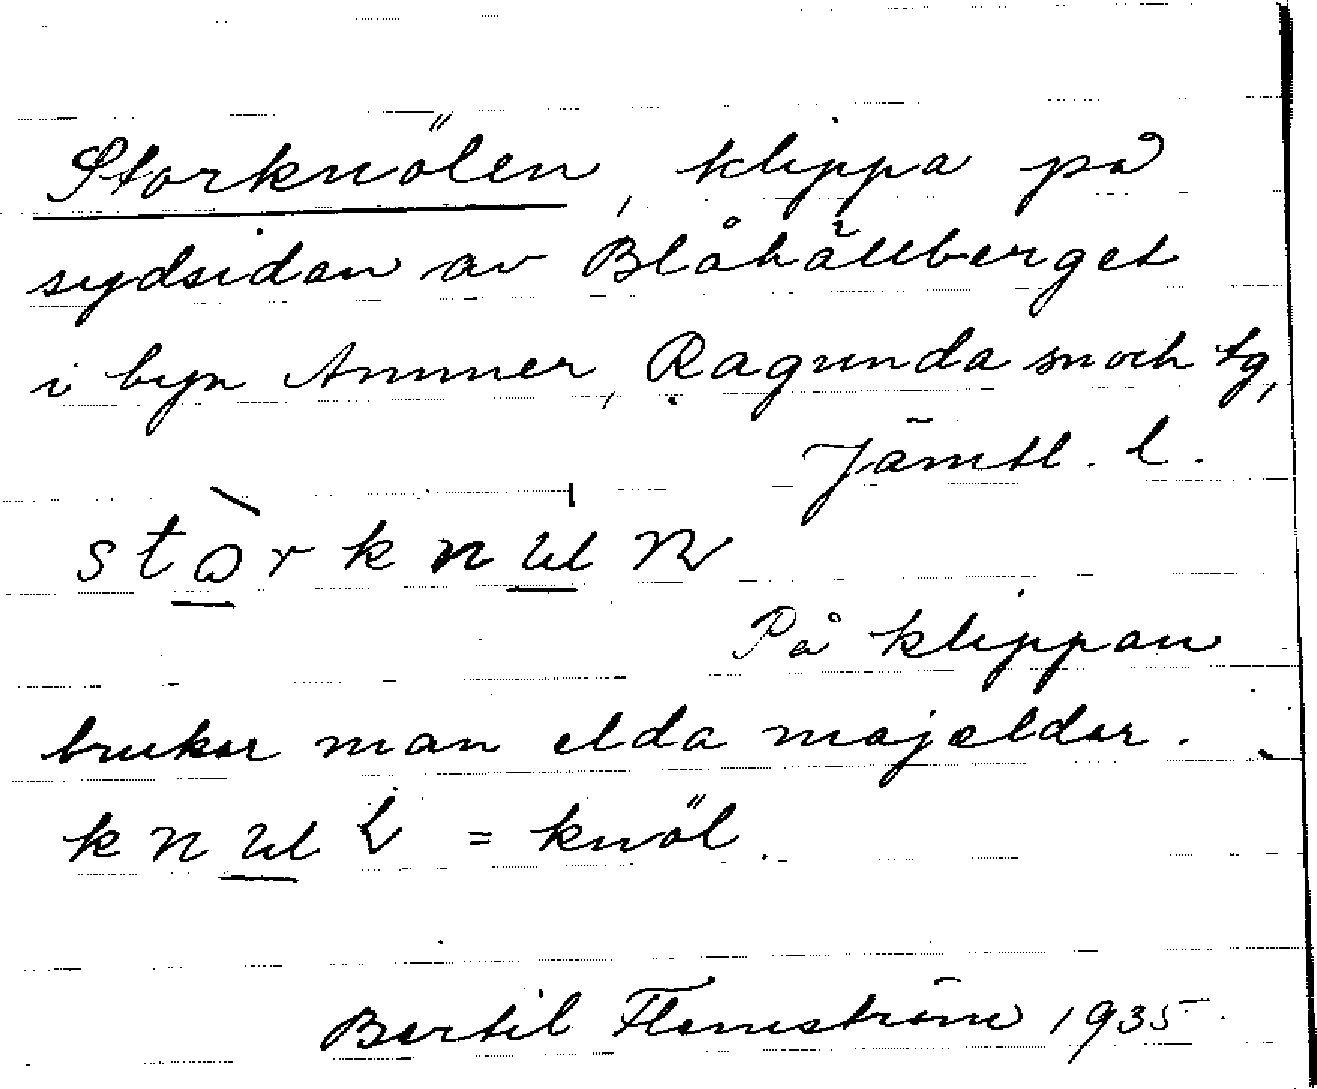 Storknölen, klippa på
sydsidan av Blåhällberget
i byn Ammer, Ragunda sn och tg,
Jämtl. l.
På klippan
brukar man elda majeldar.
= knöl.
Bertil Flemström 1935